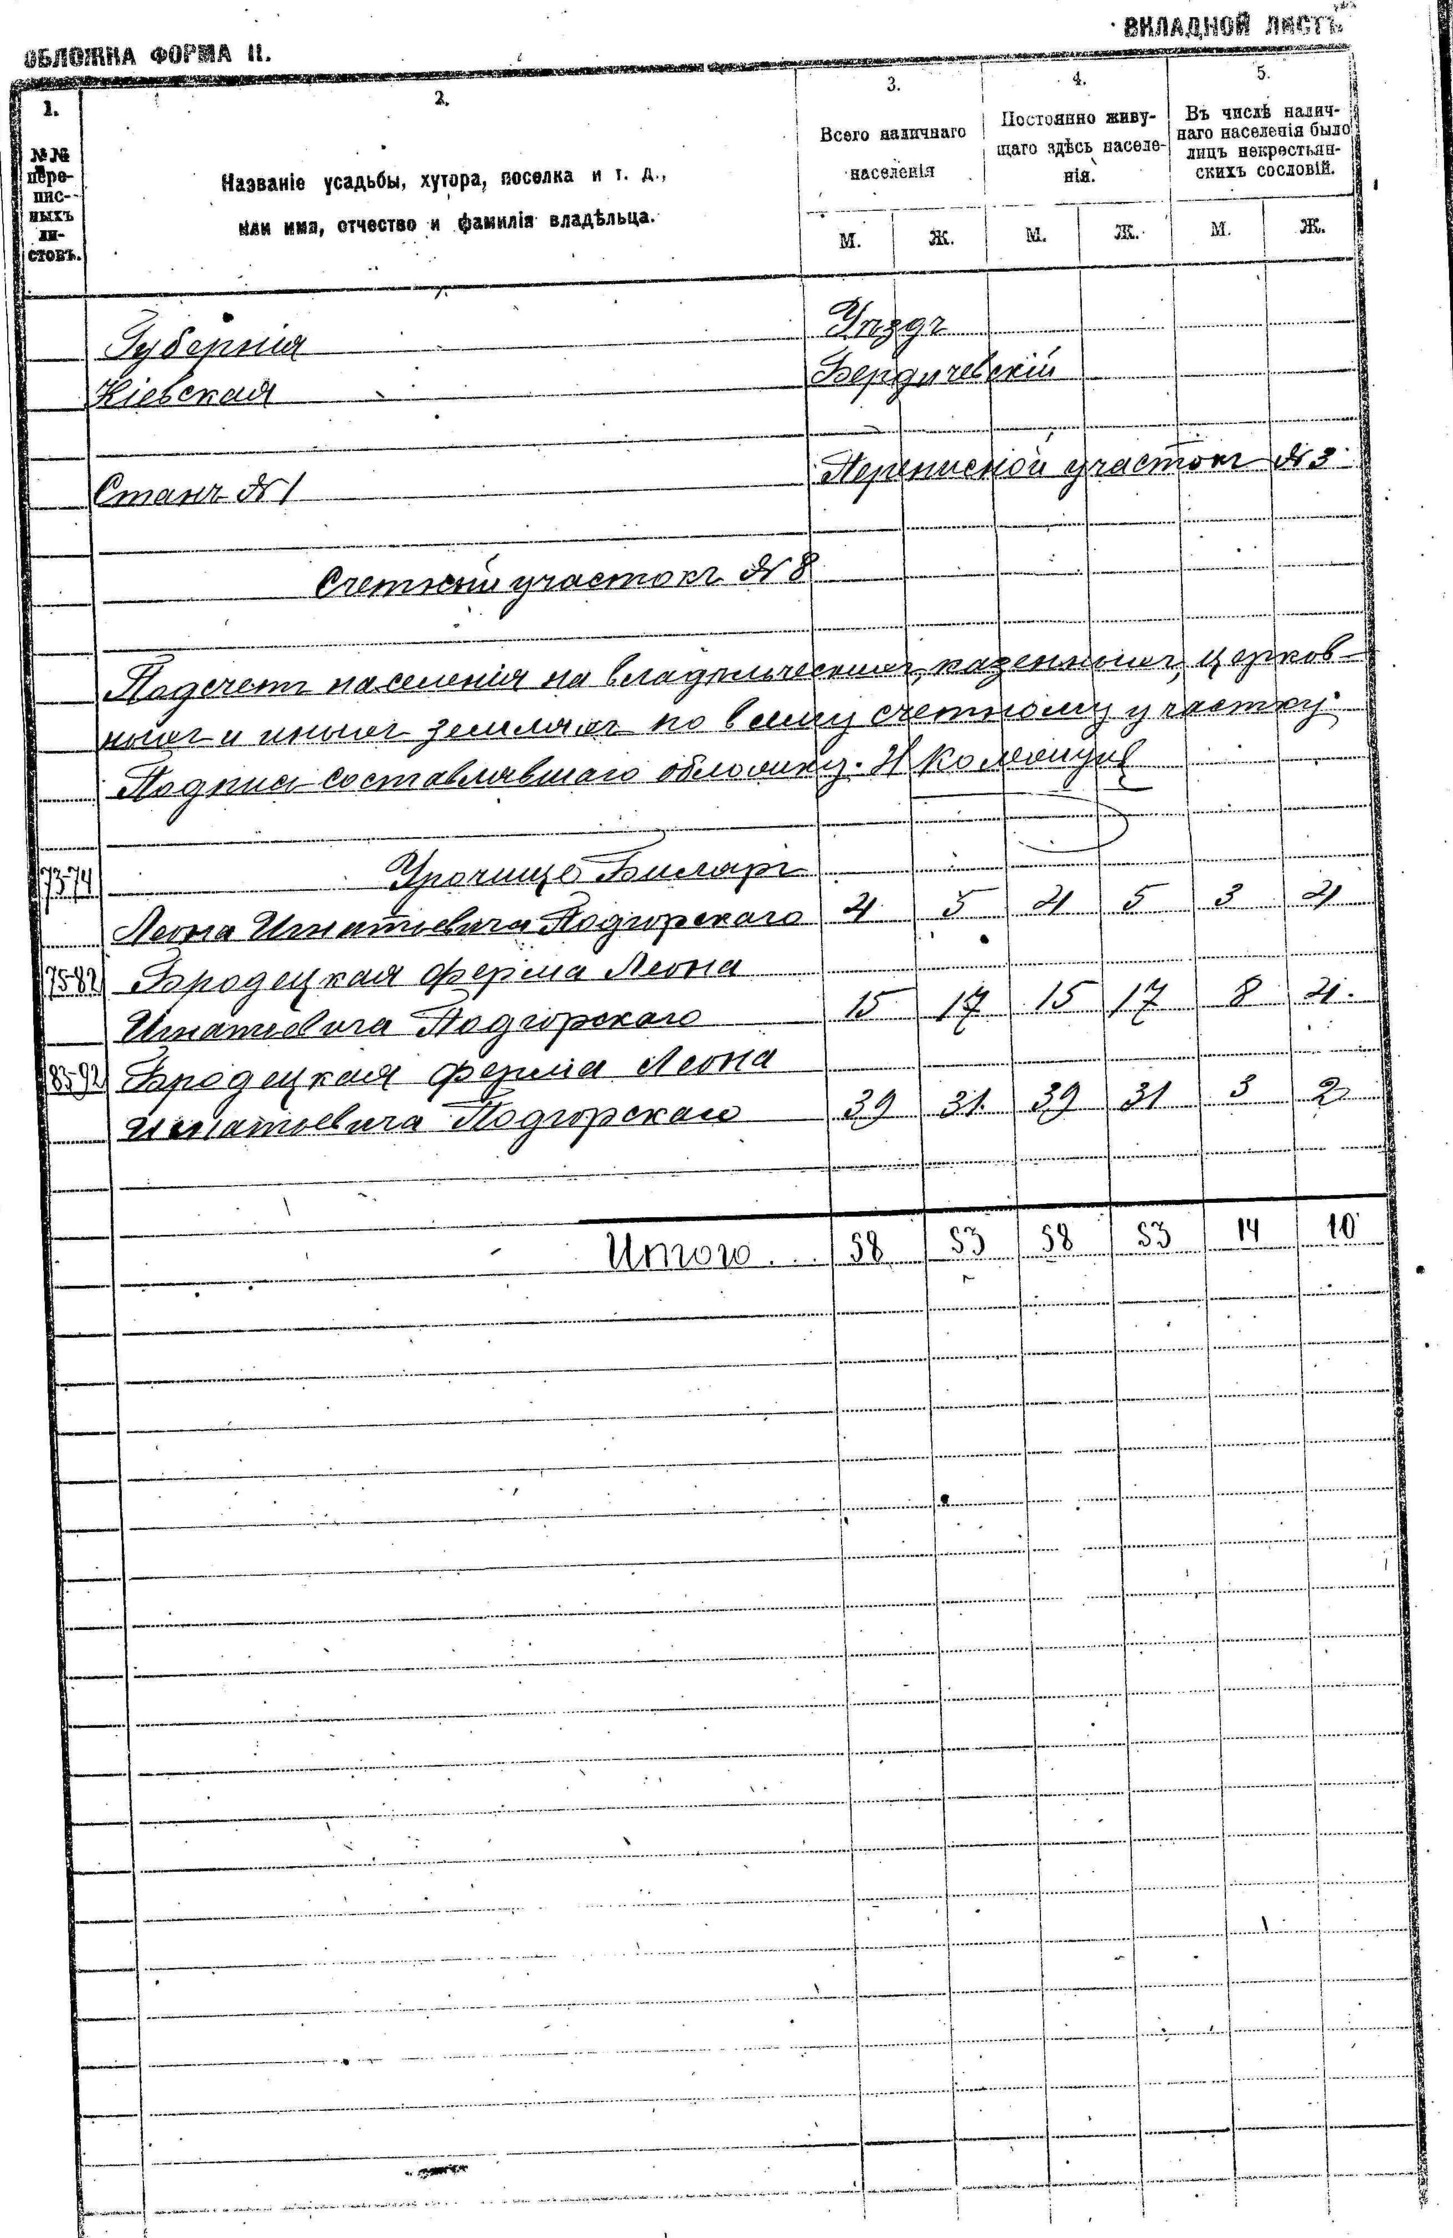 ОБЛОЖКА ФОРМА II.
ВКЛАДНОЙ ЛИСТЪ
1.
2.
3.
4.
5.
№№ пере-
пис-
ныхъ
ли-
стовъ.
Названіе усадьбы, хутора, поселка и т. д.,
или имя, отчество и фамилія владѣльца.
Всего наличнаго
населенія
Постоянно живу-
щаго здѣсь населе-
нія.
Въ числѣ налич-
наго населенія было
лицъ некрестьян-
скихъ сословій.
М. Ж. М. Ж. М. Ж.
Губернія Уѣздъ
Кіевская Бердичевскій
Станъ №1 Переписной участокъ №3
Счетный участокъ №8
Подсчетъ населенія на владѣльческихъ, казенныхъ, церков-
ныхъ и иныхъ земляхъ по всему счетному участку
Подпись составлявшаго обложку. Н
73-74 Урочище
Леона Игнатьевича Подгорскаго 4 5 4 5 3 4
75-82 Бродецкая ферма Леона
Игнатьевича Подгорскаго 15 17 15 17 8 4.
83-92 Бродецкая ферма Леона
Игнатьевича Подгорскаго 39 31. 39 31 3 2
Итого... 58 53 58 53 14 10